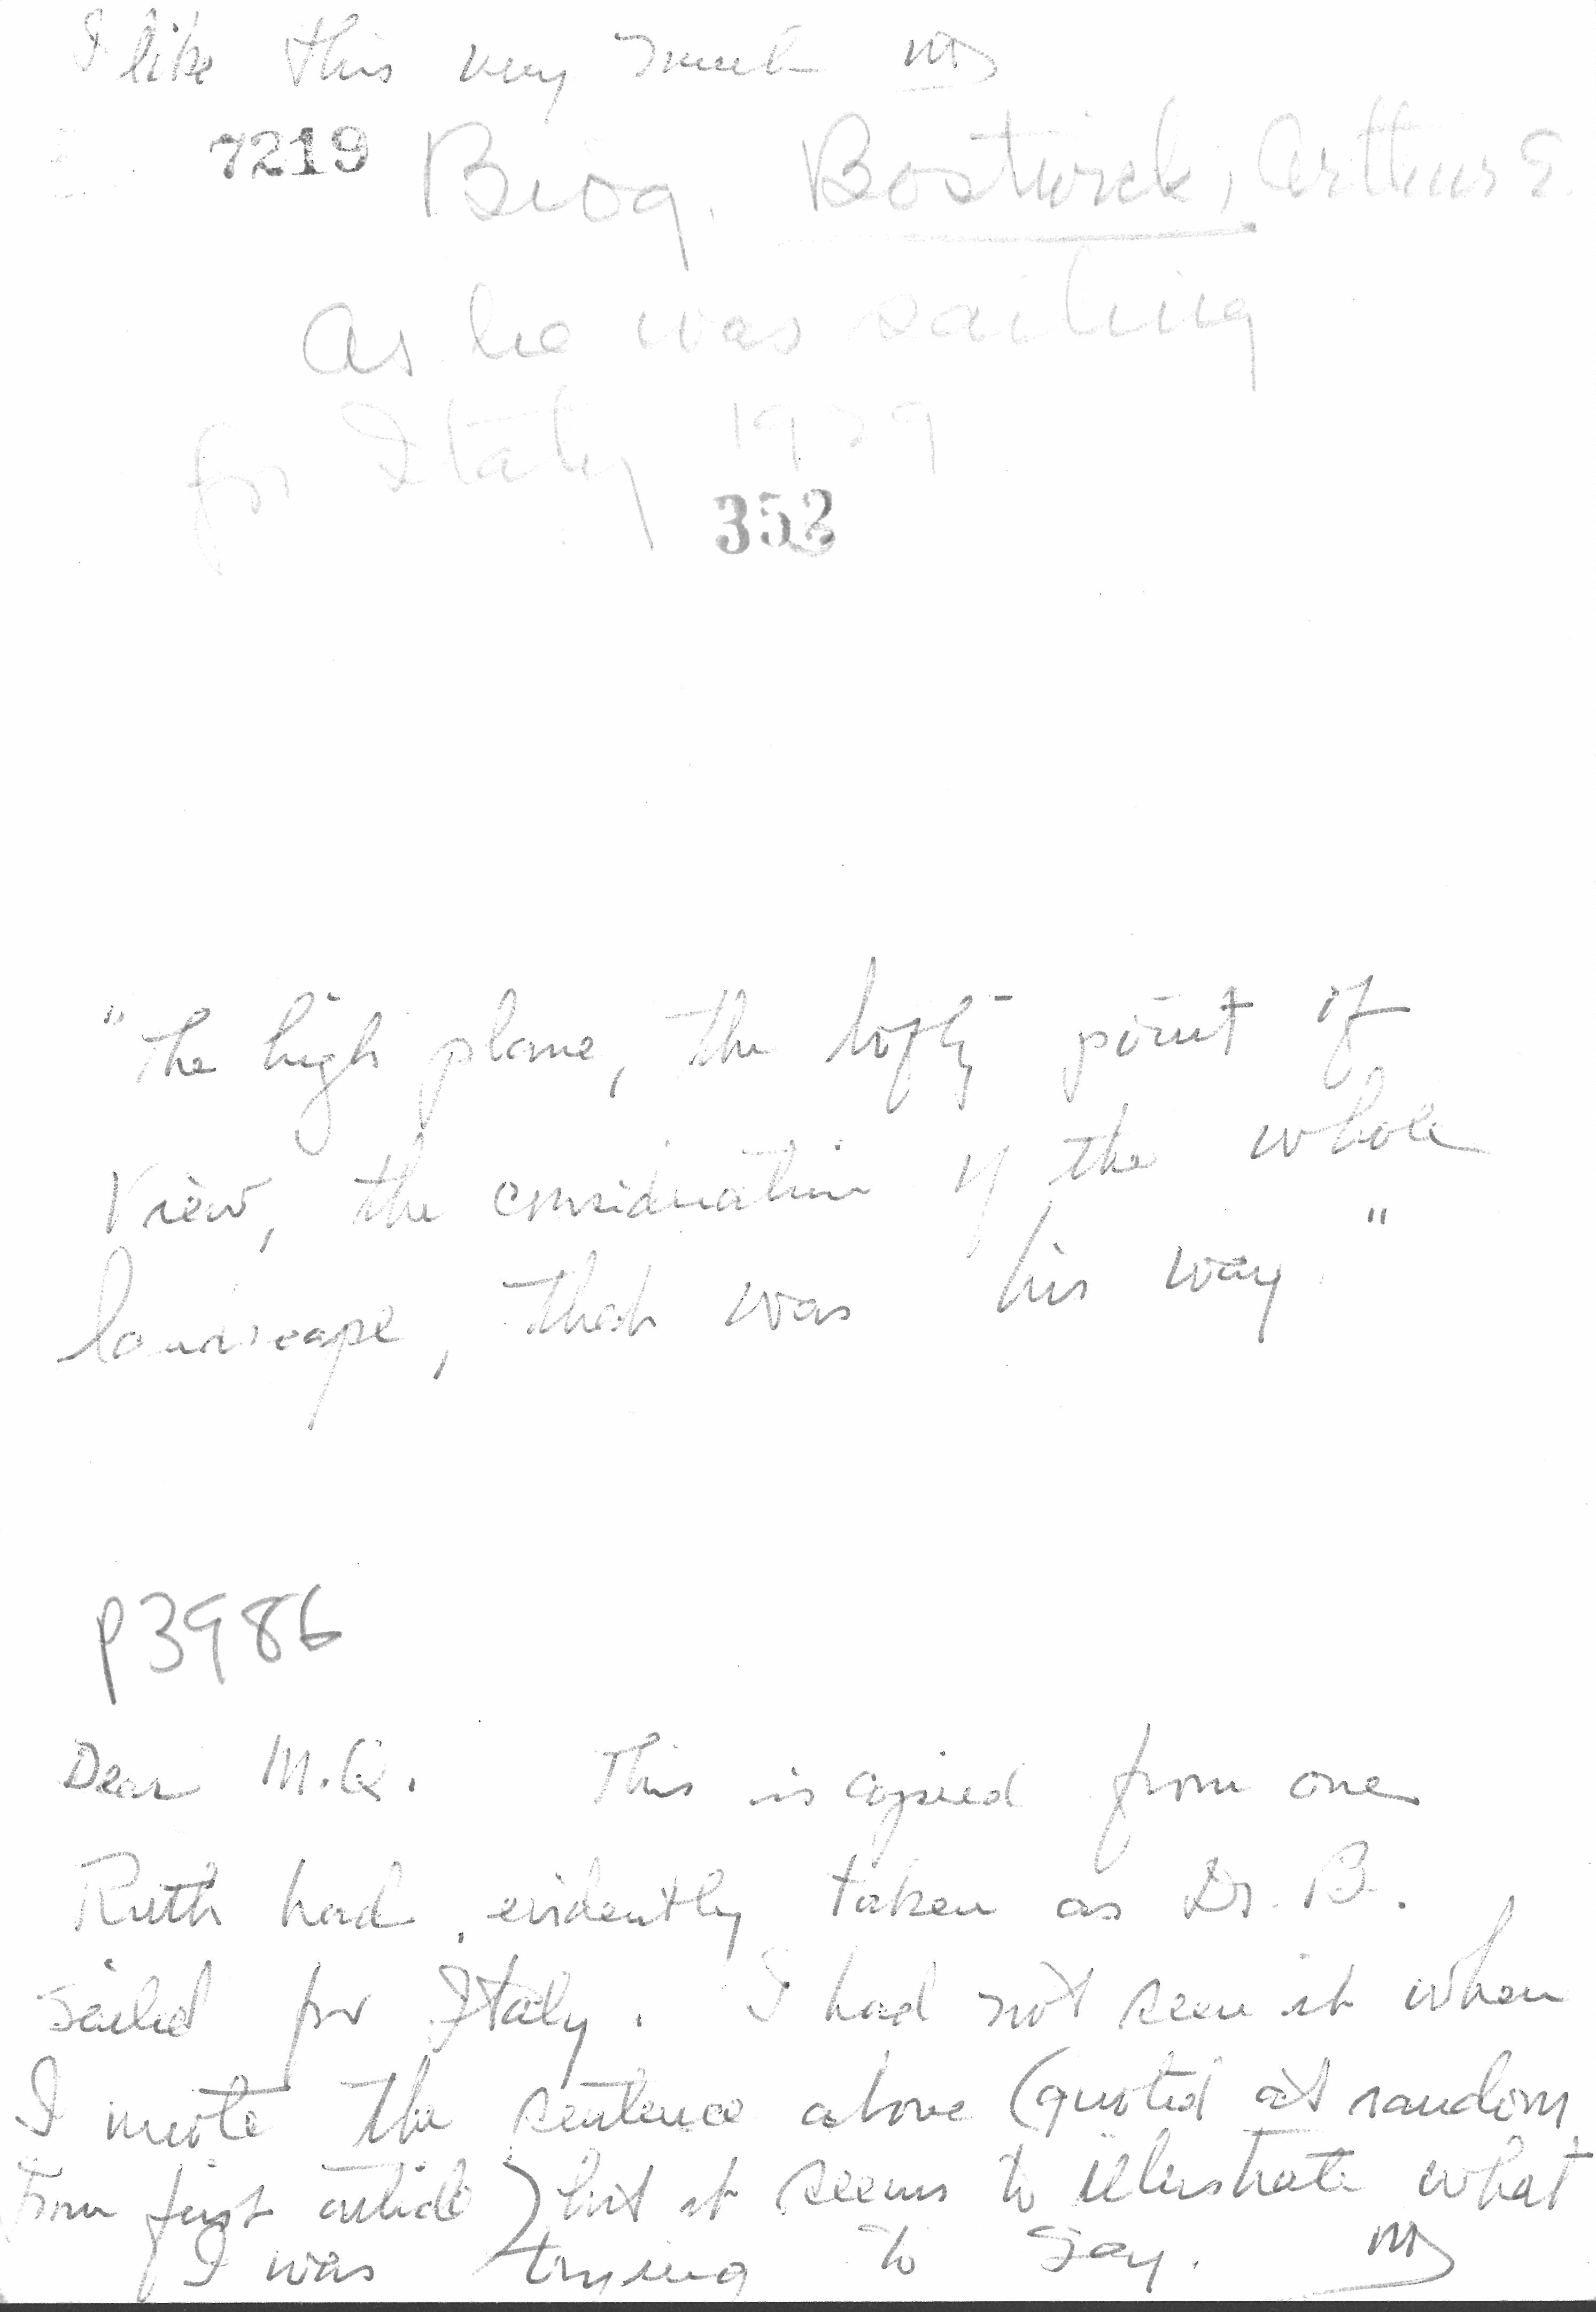 I like this very much
7219 Biog. Bostwick, Arthur E.
As he was sailing
for Italy 1929
353
"The high plane, the lofty point of
view, the consideration of the whole
landscape, that was his way."
p3986
Dear M.Q. This is copied from one
Ruth had evidently taken as Dr. B.
sailed for Italy. I had not seen it when
I wrote the sentence above (quoted at random
from first article) but it seems to illustrate what
I was trying to say.